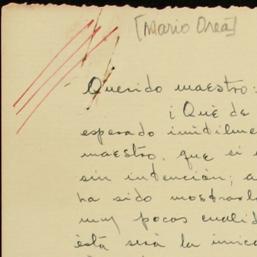 [Mario Orea]
Querido maestro:
¡Qué de
esperado inútilme
maestro, que si
sin intención; a
ha sido mostrarle
muy pocas cualid
ésta será la única